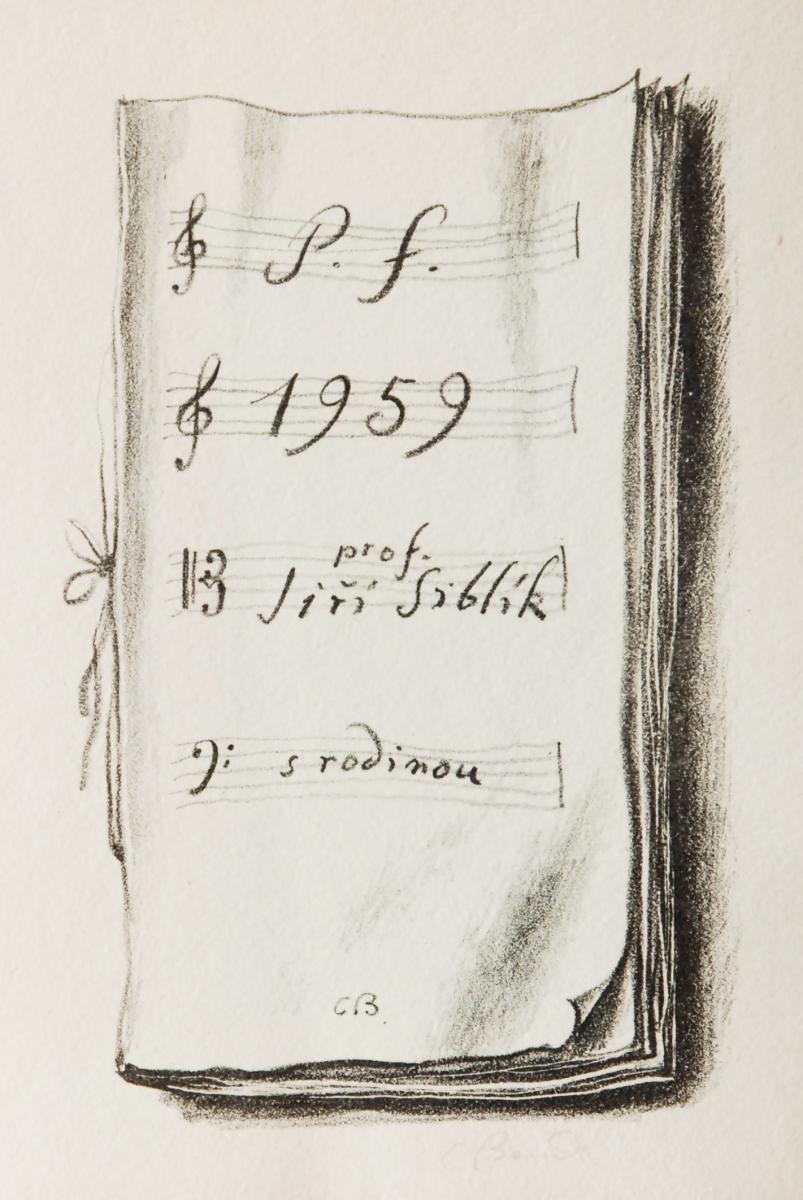 P. f.
1959
prof.
Jiří Siblík
s rodinou
CB